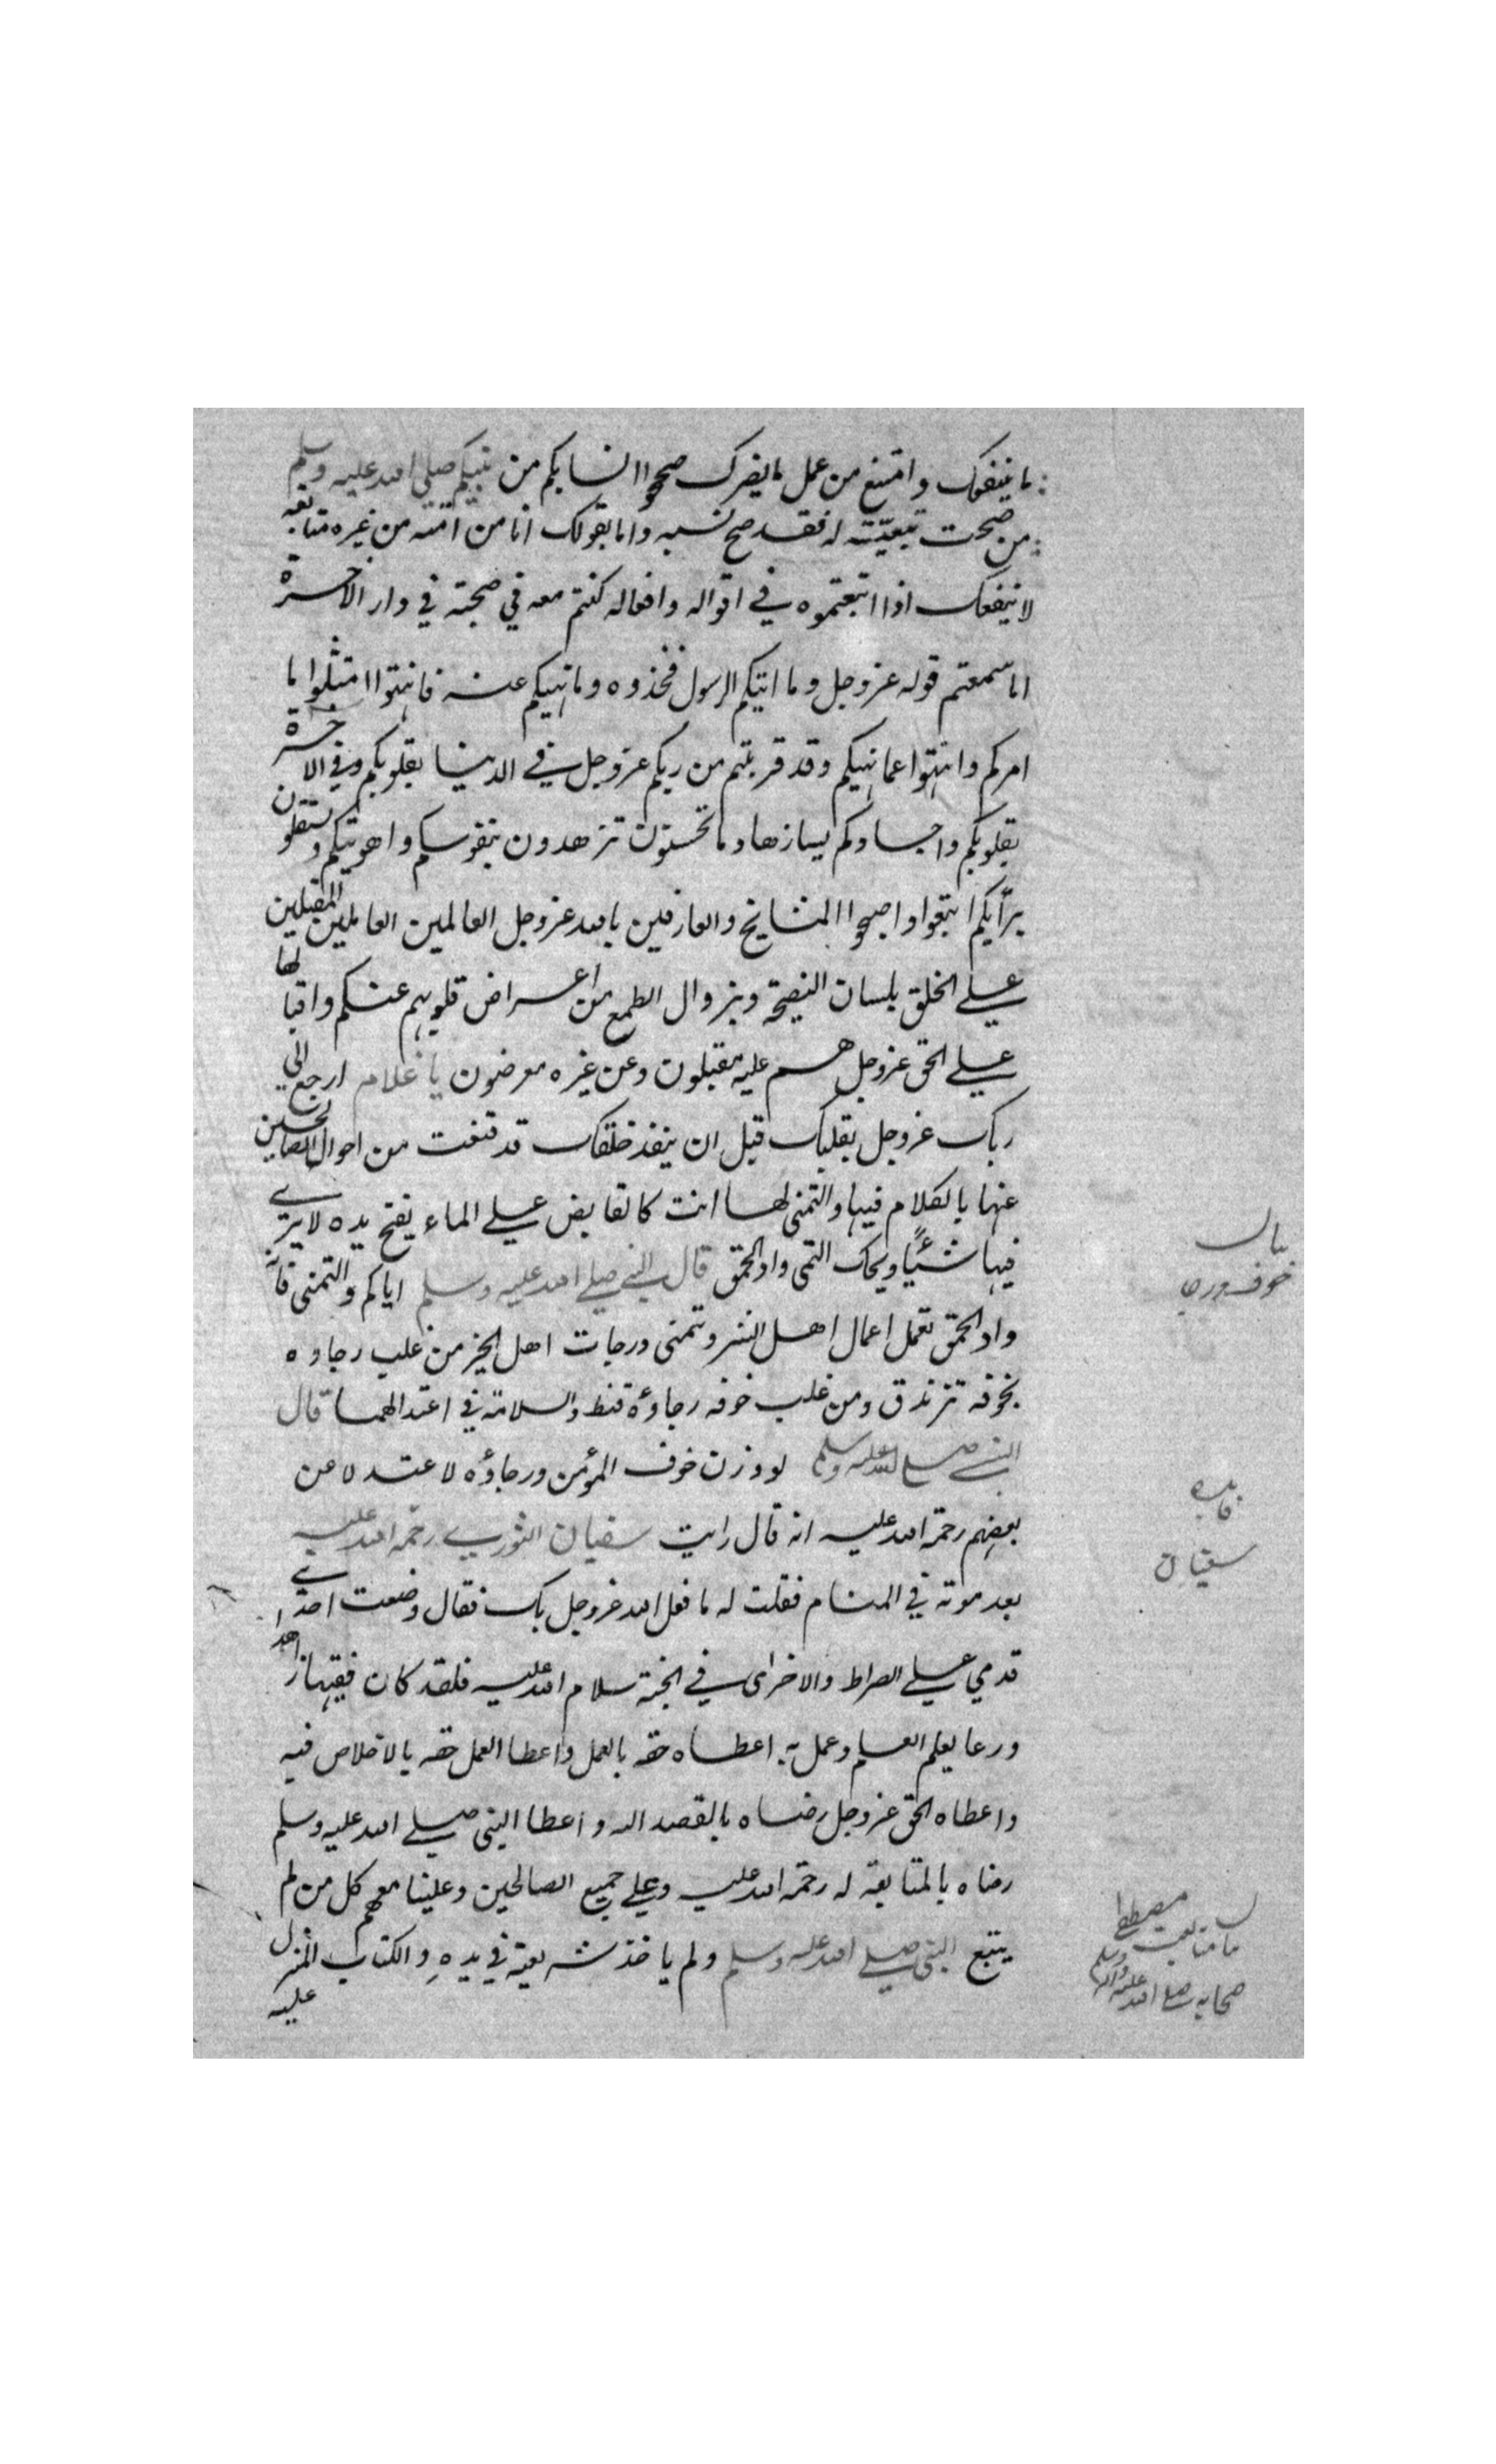 ما ينفعك وامتنع من عمل ما يضرك صححوا انسابكم من نبيكم صلي الله عليه وسلم
من صحت تبعيّته له فقد صح نسبه واما بقولك انا من امته من غيره متابعة
لا ينفعك اذا اتبعتموه في اقواله وافعاله كنتم معه في صحبته في دار الآخرة
اما سمعتم قوله عز وجل وما اتيكم الرسول فخذوه وما نهيكم عنه فانتهوا امتثلوا ما
امركم وانتهوا عما نهيكم وقد قربتم من ربكم عز وجل في الدنيا بقلوبكم وفي الاخرة
بقلوبكم واجسادكم يا زهاد ما تحسنون تزهدون بنفوسكم واهويتكم وتستقلون
برأيكم اتبعوا واصحبوا المشايخ والعارفين بالله عز وجل العالمين العاملين المقبلين
علي الخلق بلسان النصيحة وبزوال الطمع من اعراض قلوبهم عنكم واقبالها
علي الحق عز وجل هم عليه مقبلون وعن غيره معرضون يا غلام ارجع الي
ربك عز وجل بقلبك قبل ان ينفذ خلقك قد قنعت من احوال الصالحين
عنها بالكلام فيها والتمني لها انت كالقابض علي الماء يفتح يده لا يرى
فيها شئيًا ويحك التمني واد الحمق قال النبي صلي الله عليه وسلم اياكم والتمني فانه
واد الحمق تعمل اعمال اهل الشر وتتمني درجات اهل الخير من غلب رجاوه
بخوفه تزندق ومن غلب خوفه رجاوُه قنط والسلامة في اعتدالهما قال
النبي صلي الله عليه وسلم لو وزن خوف المؤمن ورجاؤه لاعتدلا عن
بعضهم رحمة الله عليه انه قال رايت سفيان الثوري رحمة الله عليه
بعد موته في المنام فقلت له ما فعل الله عز وجل بك فقال وضعت احدي
قدمي علي الصراط والاخرى في الجنة سلام الله عليه فلقد كان فقيها زاهدا
ورعا يعلم العلم وعمل به اعطاه حقه بالعمل واعطا العمل حقه بالاخلاص فيه
واعطاه الحق عز وجل رضاه بالقصد اليه واعطا النبي صلي الله عليه وسلم
رضاه بالمتابعة له رحمة الله عليه وعلي جميع الصالحين وعلينا معهم كل من لم
يتبع النبي صلي الله عليه وسلم ولم ياخذ شريعته في يدهِ والكتاب المنزل
عليه
بيان
خوف ورجا
فايده
سفيان